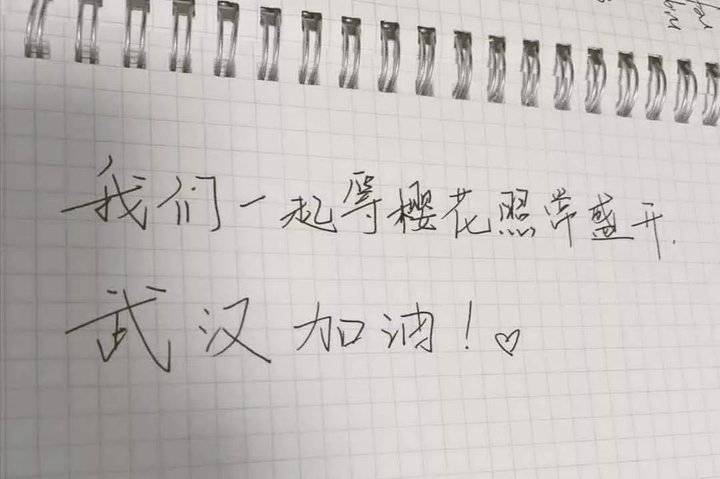 我们一起等樱花照常盛开.
武汉加油!♡